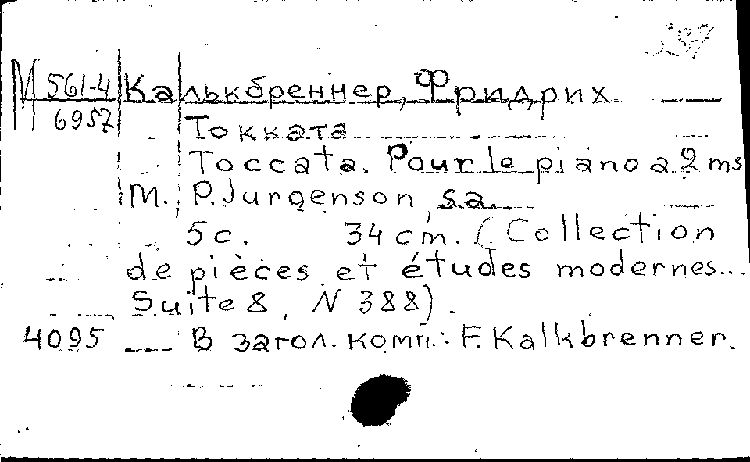 297
М 561-4 Калькбреннер, Фридрих
6957 Токката
Toccata. Pour le piano a 2 ms
М., P. Jurgenson, s.a.
5 c. 34 cm. (Collection
de pièces et études modernes...
Suite 8, N 388).
4095 В загол. комп.: F. Kalkbrenner.